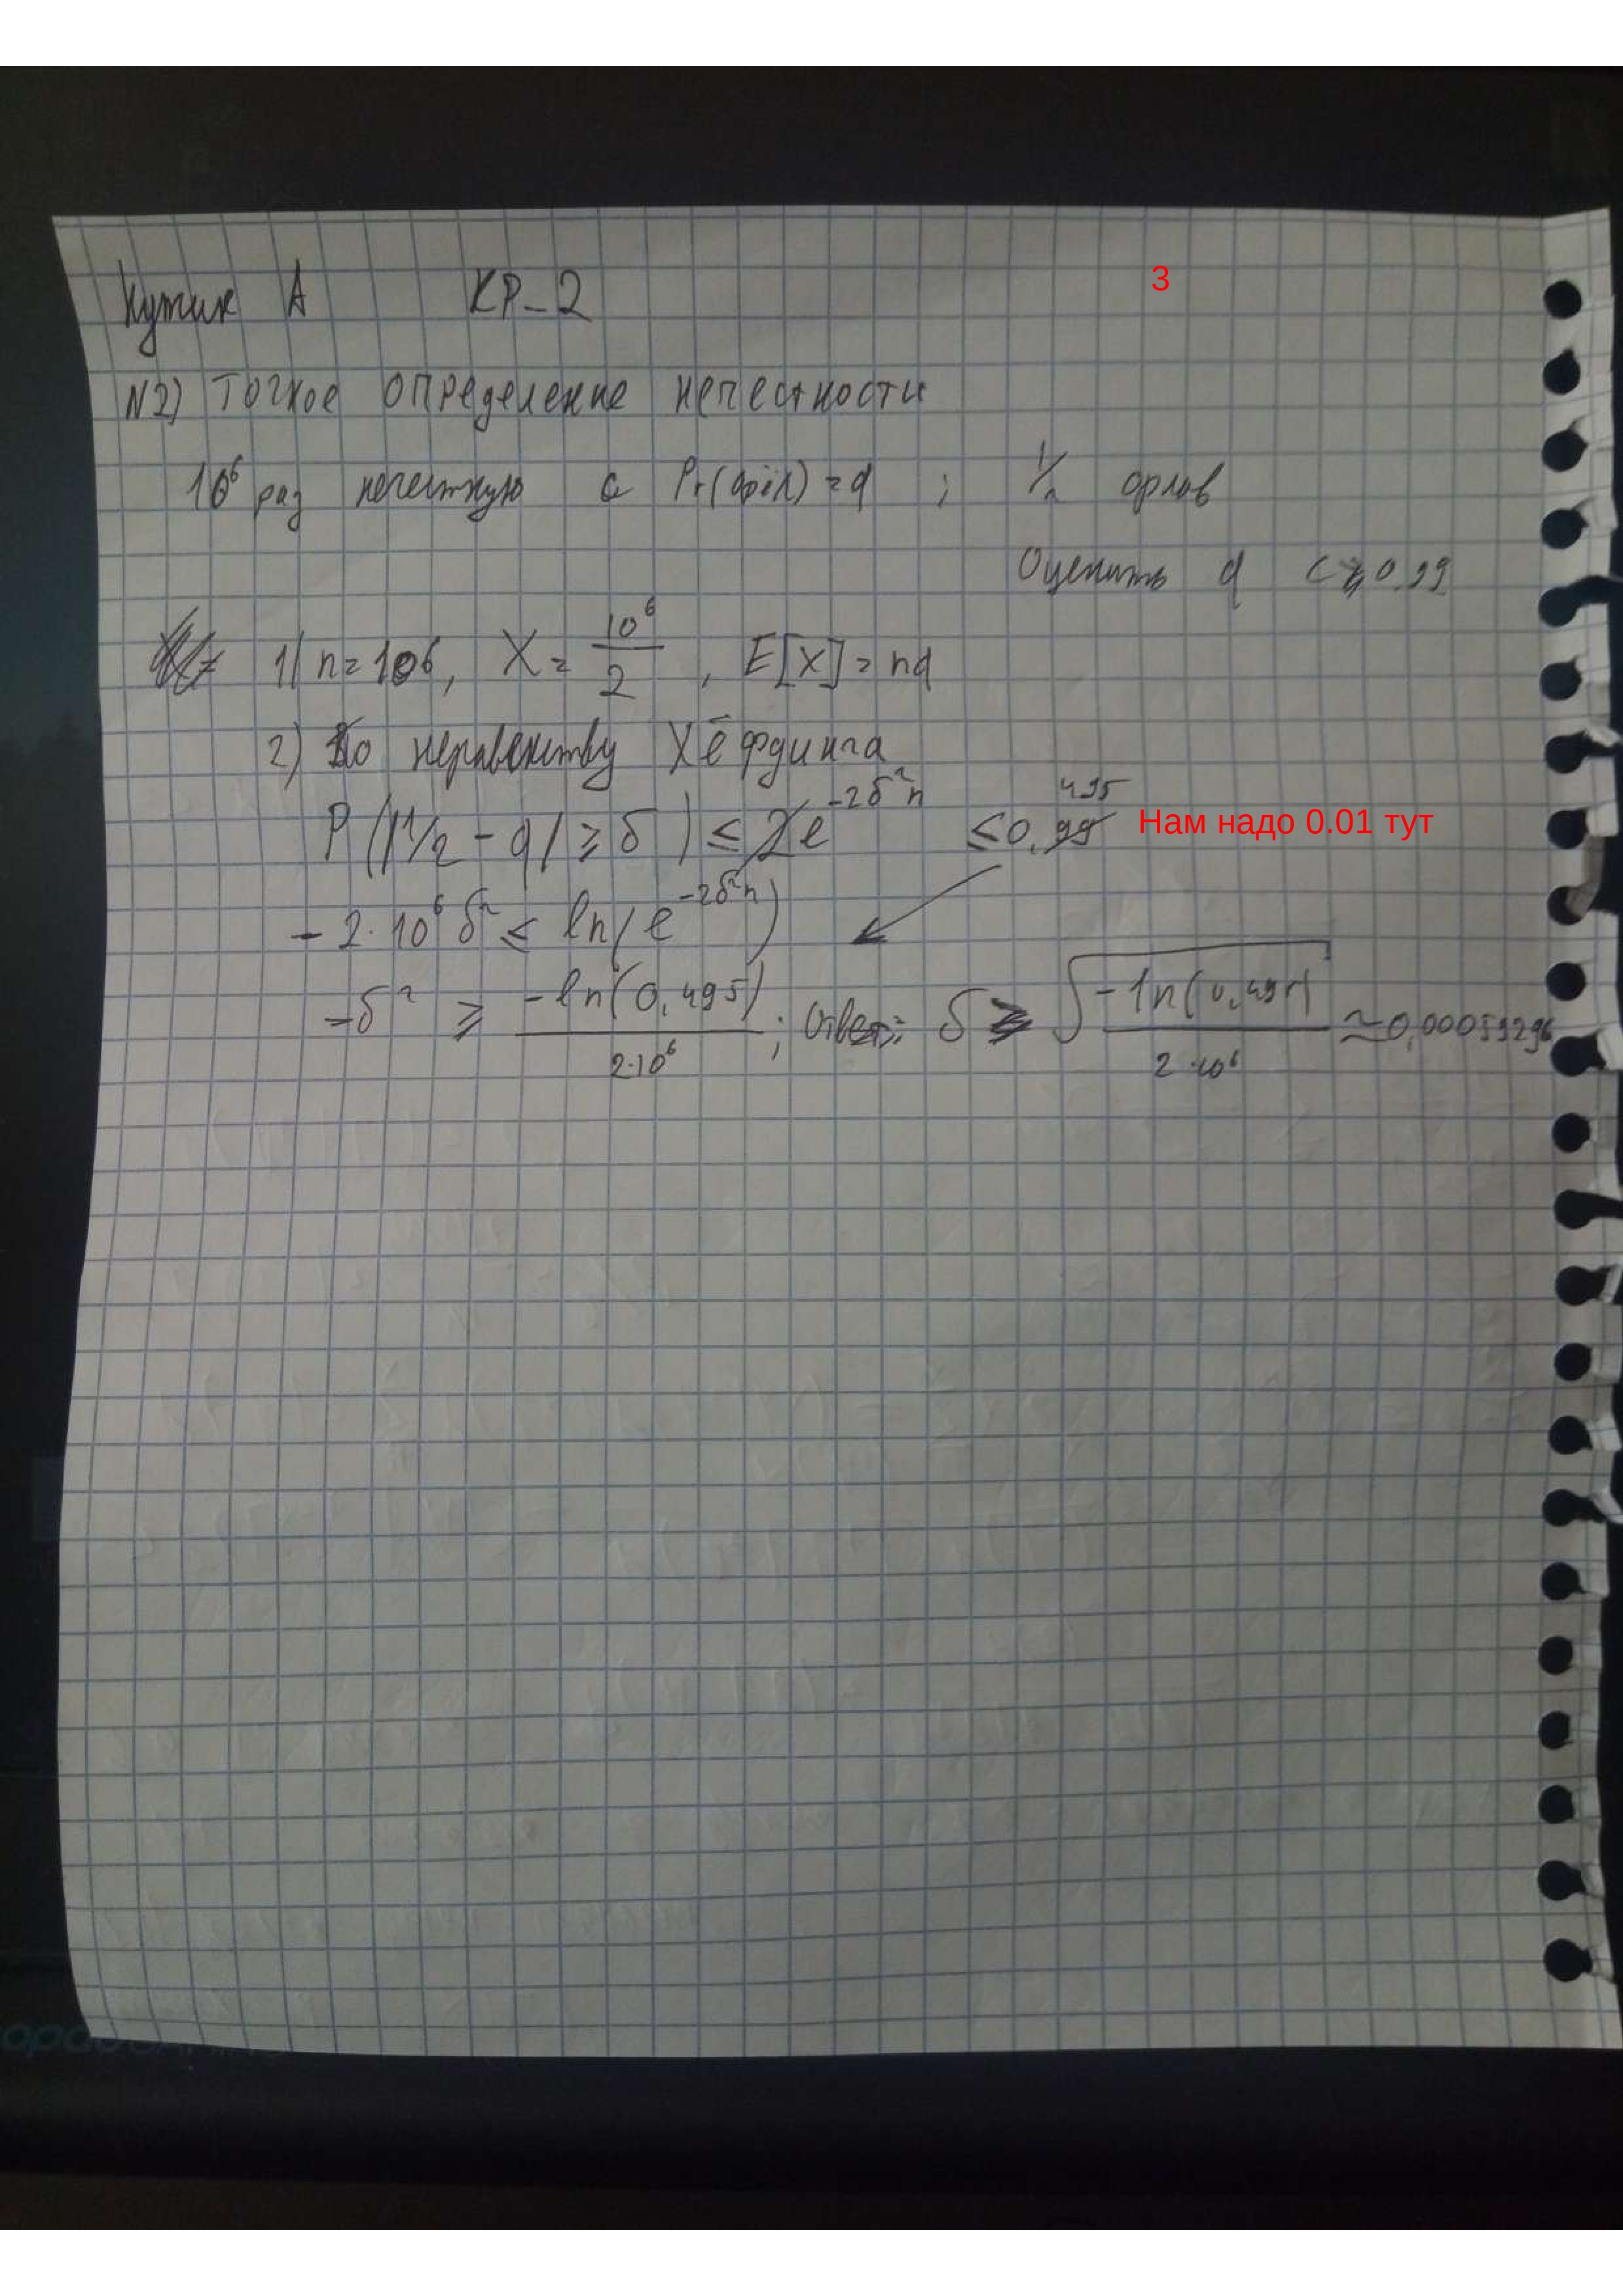 Кутик А КР-2 3
N2) Точное определение нечестности
10⁶ раз нечестную с Pr(орёл) = q ; 1/2 орлов
Оценить q с ≥ 0.99
1) n = 10⁶, X = 10⁶/2 , E[X] = nq
2) По неравенству Хёфдинга
P(|1/2 - q| ≥ δ) ≤ 2e^(-2δ²n) ≤ 0,495 Нам надо 0.01 тут
-2·10⁶ δ² ≤ ln(e^(-2δ²n))
-δ² ≥ -ln(0,495)/(2·10⁶) ; Ответ: δ ≥ √(-ln(0,495)/(2·10⁶)) ≈ 0,00059296